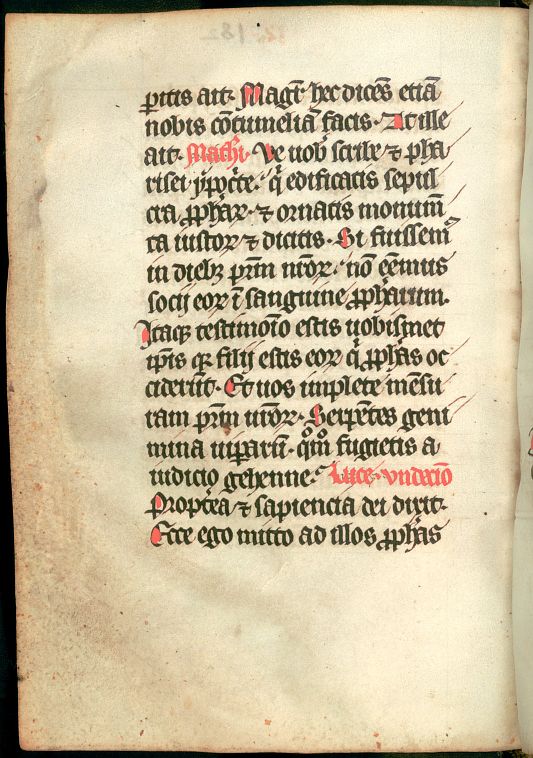 pitis ait. Magr̄ hec dicēs etiā
nobis cōtumeliā facis. At ille
ait. Mathi. Ve uob̄ scribe ⁊ pha
risei ypoc̄te. q̄ edificatis sepul
cra ꝓphaꝝ. ⁊ ornatis monum̄
ta iustoꝝ ⁊ dicitis. Si fuissem̄
in dieb⁊ prm̄ nr̄oꝝ. nō eēmus
socij eoꝝ ī sanguine ꝓphaꝝum.
Itaqꝫ testimoīo estis uobismet
ip̄is qꝛ filij estis eoꝝ q̄ ꝓphas oc
ciderūt. Et uos implete mēsu
ram prm̄ ur̄oꝝ. Serpētes geni
mina uiparū. qͦmͦ fugietis a
iudicio gehenne. Luce. vndecīo
Propt̄ea ⁊ sapiencia dei dixit.
Ecce ego mitto ad illos ꝓphas